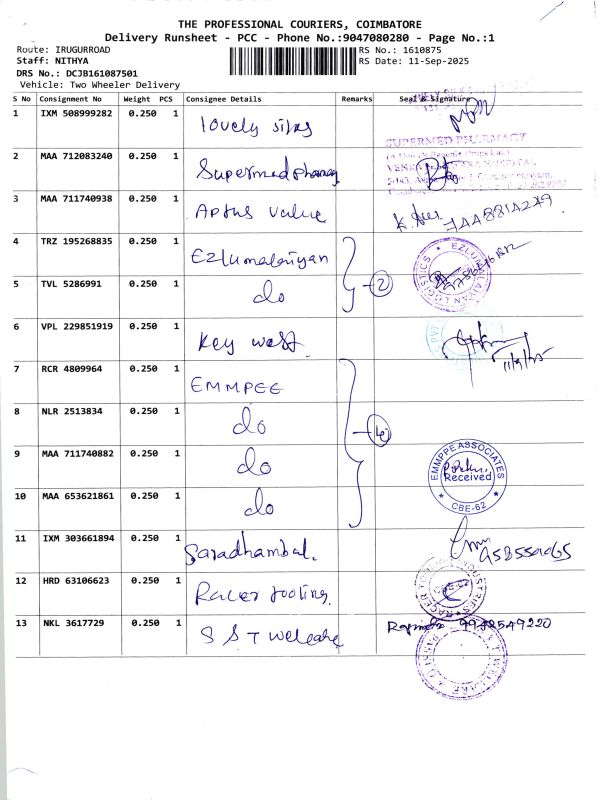 THE PROFESSIONAL COURIERS, COIMBATORE
Delivery Runsheet - PCC - Phone No.:9047080280 - Page No.:1
Route: IRUGURROAD
RS No.: 1610875
Staff: NITHYA
RS Date: 11-Sep-2025
DRS No.: DCJB161087501
Vehicle: Two Wheeler Delivery
S No Consignment No Weight PCS Consignee Details Remarks Seal & Signature
1 IXM 508999282 0.250 1 lovely
2 MAA 712083240 0.250 1 Supermed pharmacy
SUPERMED PHARMACY
3 MAA 711740938 0.250 1 Aptus value
4 TRZ 195268835 0.250 1 Ezlumalaiyan
EZLUMALAIYAN LOGISTICS
5 TVL 5286991 0.250 1 do 2
6 VPL 229851919 0.250 1 Key west
11/9/25
7 RCR 4809964 0.250 1 EMMPEE
8 NLR 2513834 0.250 1 do 4
9 MAA 711740882 0.250 1 do
EMMPPE ASSOCIATES
Received
CBE-62
10 MAA 653621861 0.250 1 do
11 IXM 303661894 0.250 1 Saradhambal.
12 HRD 63106623 0.250 1 Racer tooling.
13 NKL 3617729 0.250 1 S S T welcare